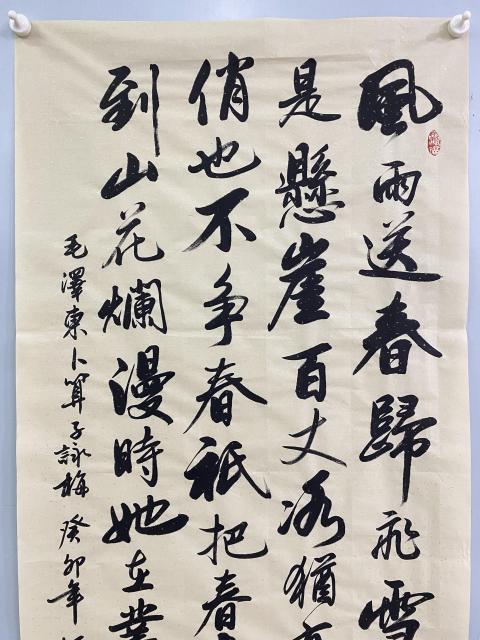 風雨送春歸飛雪
是懸崖百丈冰猶
俏也不争春祇把春
到山花爛漫時她在叢
毛澤東卜算子詠梅 癸卯年